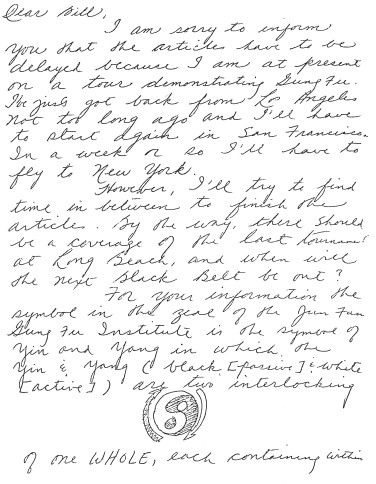 Dear Bill,
I am sorry to inform
you that the articles have to be
delayed because I am at present
on a tour demonstrating Gung Fu.
I've just got back from Los Angeles
not too long ago and I'll have
to start again in San Francisco.
In a week or so I'll have to
fly to New York.
However, I'll try to find
time in between to finish the
articles. By the way, there should
be a coverage of the last tournament
at Long Beach, and when will
the next Black Belt be out?
For your information the
symbol in the zeal of the Jun Fan
Gung Fu Institute is the symbol of
Yin and Yang in which the
Yin & Yang (black [passive] & white
[active]) are two interlocking
of one WHOLE, each containing within